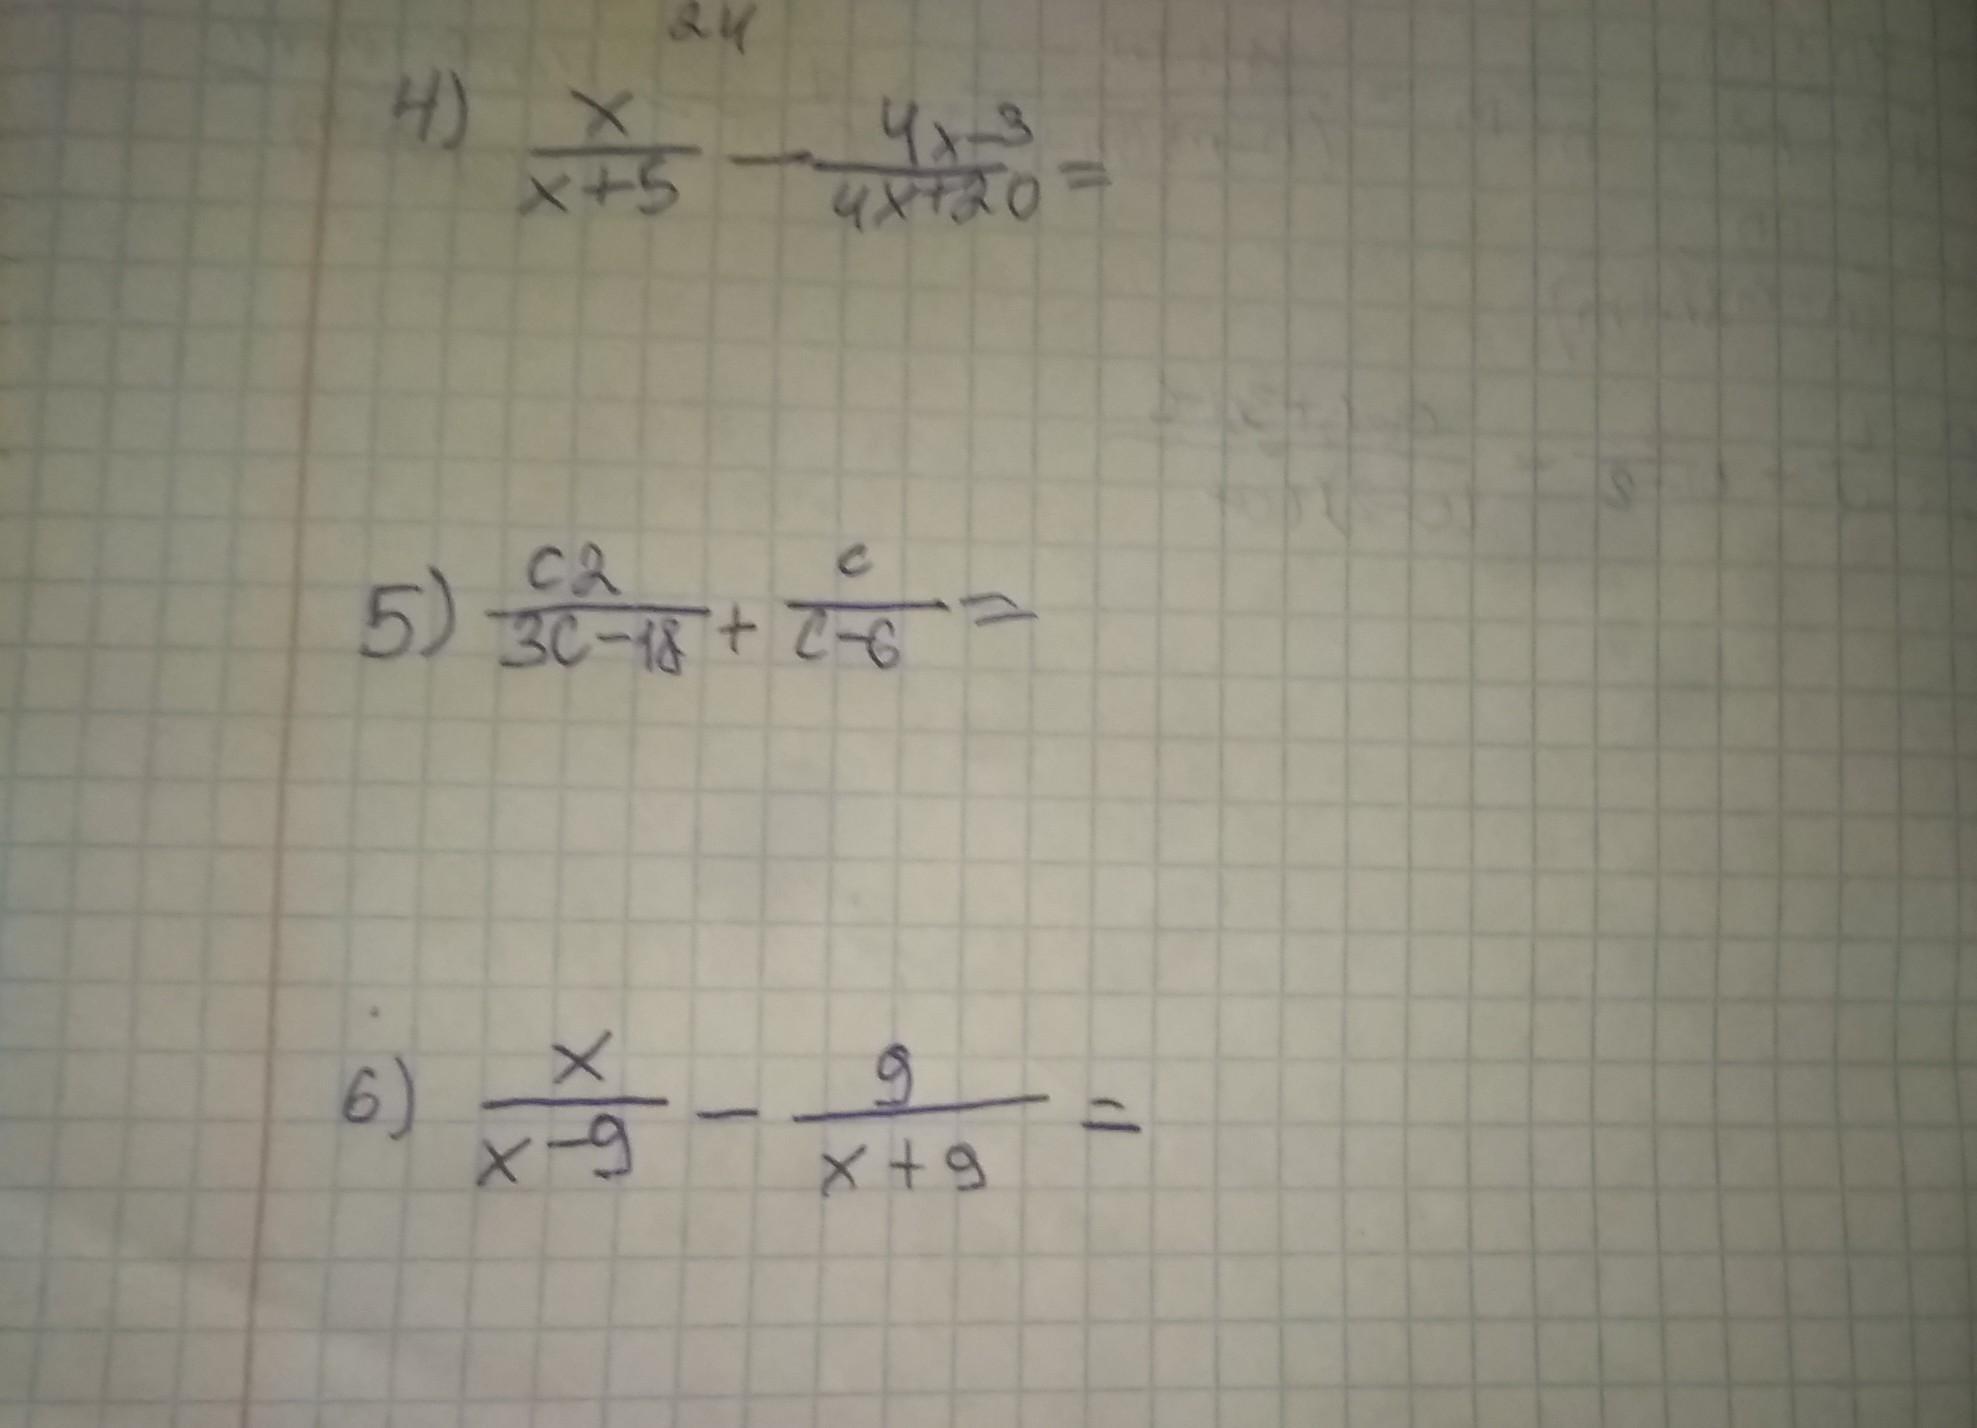 24
4) x/(x+5) - (4x-3)/(4x+20) =
5) c2/(3c-18) + c/(c-6) =
6) x/(x-9) - 9/(x+9) =